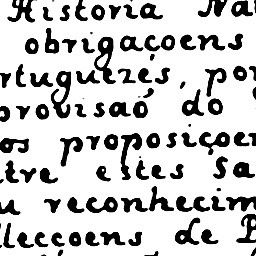 Historia Na
obrigaçoens
rtuguezes, por
provisaõ do
os proposiçoen
tre estes Sa
u reconhecim
lecçoens de B